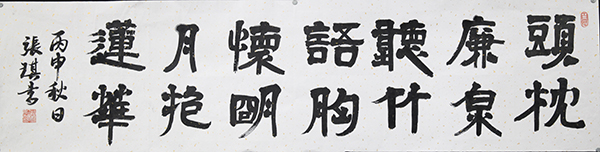 頭枕
廉泉
聽竹
語胸
懷明
月抱
蓮華
丙申秋日
張琪書